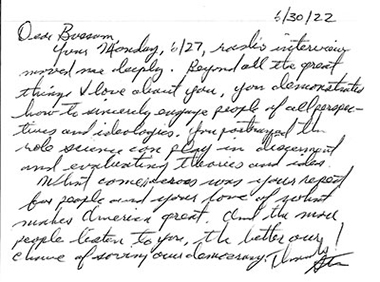 6/30/22
Dear Bussom,
Your Monday, 6/27, radio interview
moved me deeply. Beyond all the great
things I love about you, you demonstrated
how to sincerely engage people of all perspec-
tives and ideologies. You portrayed the
role science can play in discernment
and evaluating theories and ideas.
What comes across was your respect
for people and your love of what
makes America great. And the more
people listen to you, the better our
chance of saving our democracy!